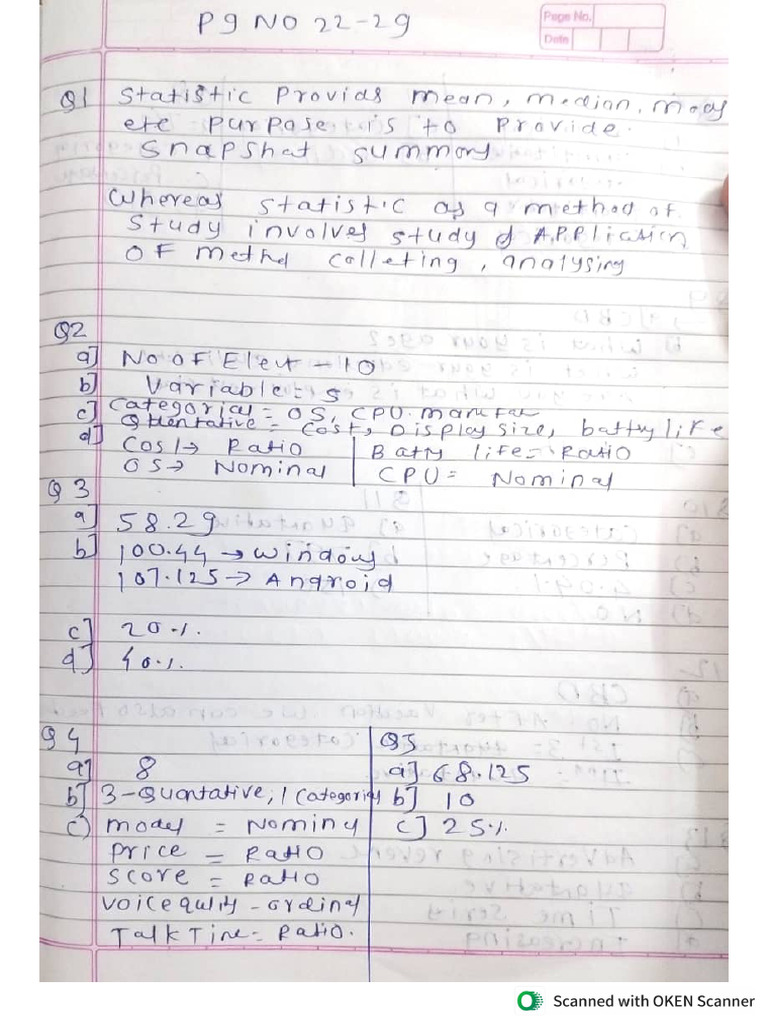 Pg NO 22-29
Page No.
Date
Q1 Statistic Provids mean, median, mode
etc Purpose is to Provide.
Snapshat summory
Whereas statistic as a method of
study involves study & Appliation
OF methd colleting, analysing
Q2
a] No OF Elect - 10
b] Variable = 5
c] Categorial = OS, CPU. manufac
Quentative = Cost, Display size, battry life
d] Cost → Ratio
OS → Nominal
Batty life = Ratio
CPU = Nominal
Q3
a] 58.29
b] 100.44 → windows
107.125 → Android
c] 20%.
d] 40%.
Q4
a] 8
b] 3-Quantative, 1 Categorial
c) model = Nominl
Price = Ratio
Score = Ratio
Voice qulity - ordinal
Talk Time = Ratio.
Q5
a] 68.125
b] 10
c] 25%.
Scanned with OKEN Scanner